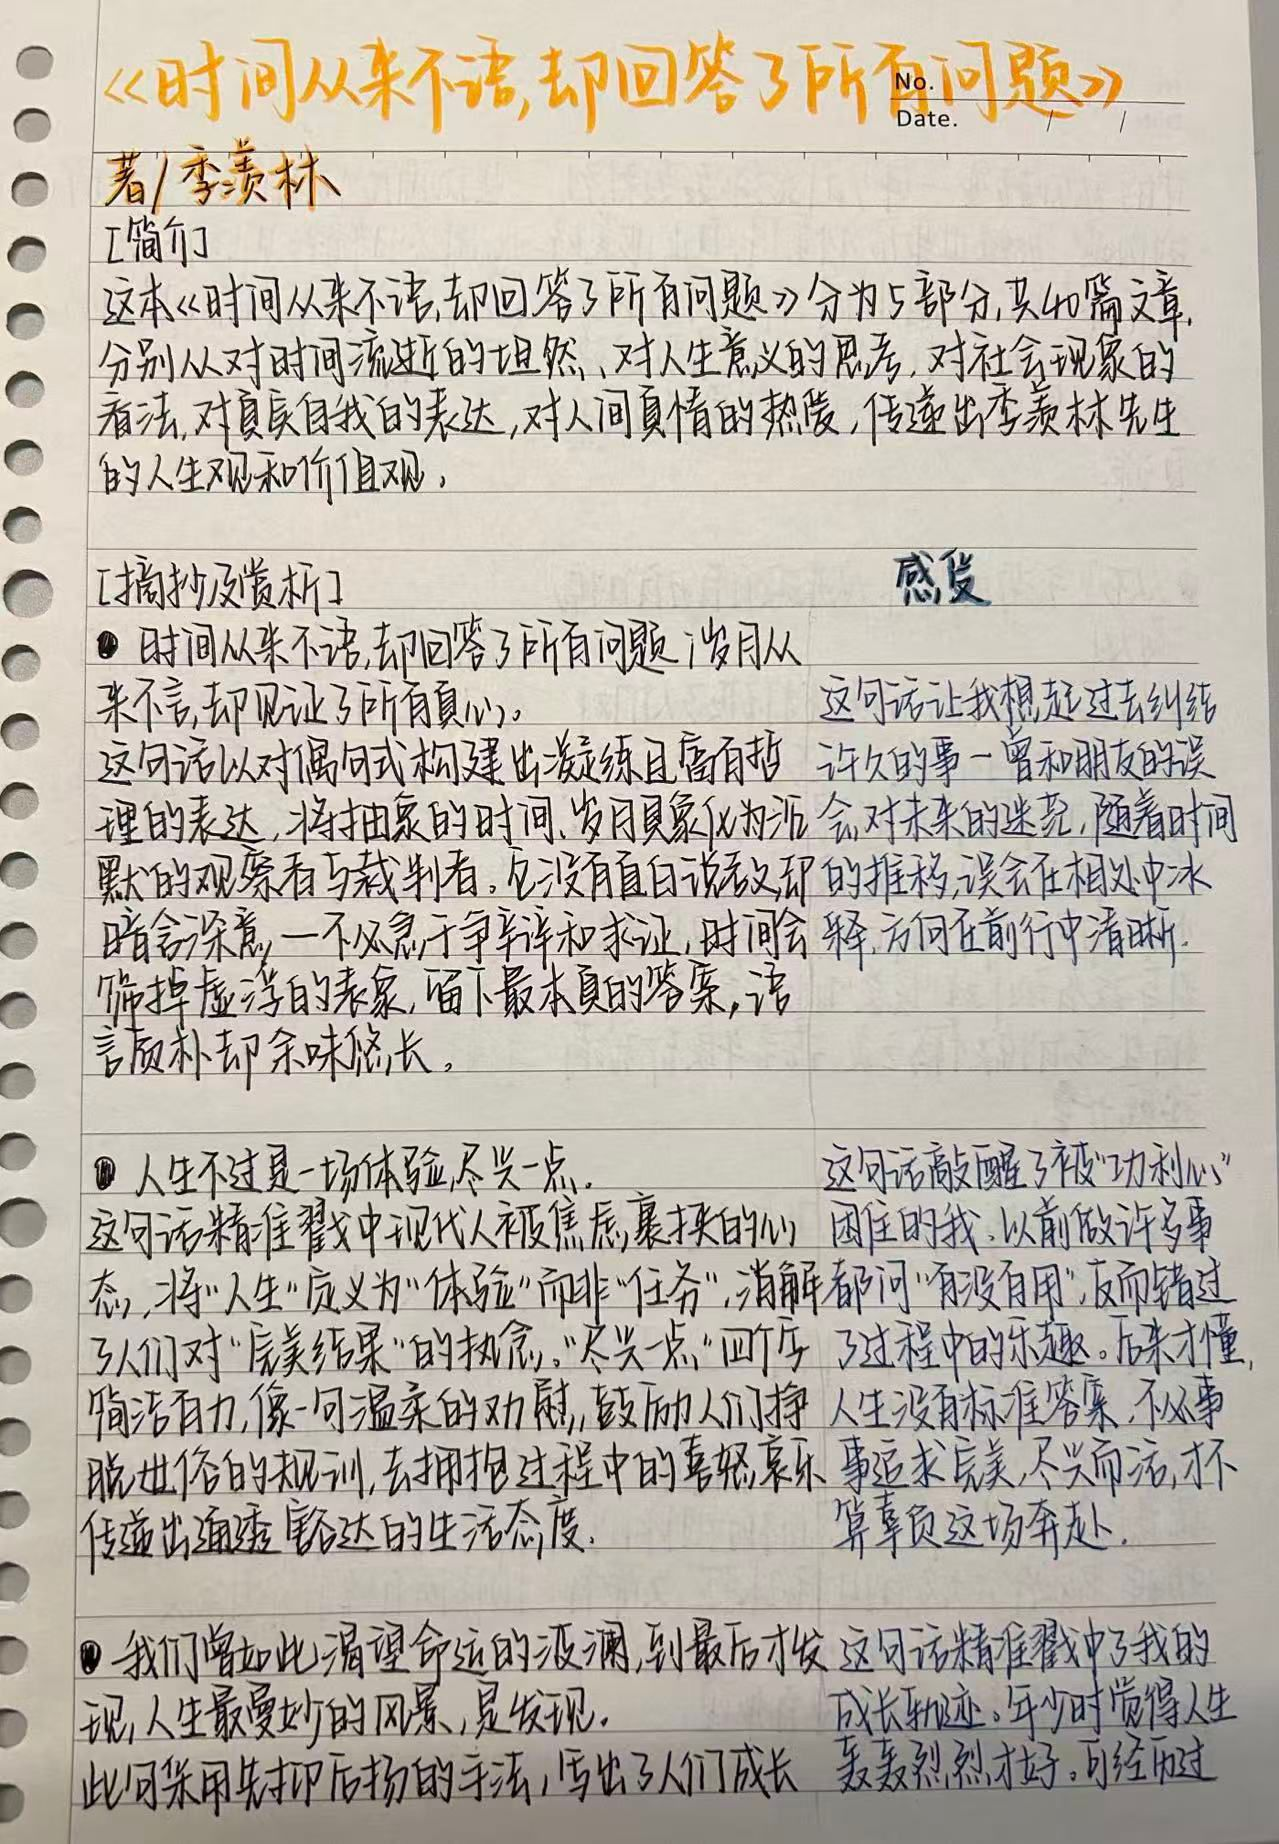 《时间从来不语,却回答了所有问题》
No.
Date.
著/季羡林
[简介]
这本《时间从来不语,却回答了所有问题》分为5部分,共40篇文章,
分别从对时间流逝的坦然、对人生意义的思考,对社会现象的
看法,对真实自我的表达,对人间真情的热度,传递出季羡林先生
的人生观和价值观。
[摘抄及赏析]
● 时间从来不语,却回答了所有问题;岁月从
来不言,却见证了所有真心。
这句话以对偶句式构建出凝练且富有哲
理的表达,将抽象的时间、岁月具象化为沉
默的观察者与裁判者。它没有直白说教,却
暗含深意,一不必急于争辩和求证,时间会
筛掉虚浮的表象,留下最本真的答案,语
言质朴却余味悠长。
● 人生不过是一场体验,尽兴一点.
这句话精准戳中现代人被焦虑裹挟的心
态,将"人生"定义为"体验"而非"任务",消解
了人们对"完美结果"的执念。"尽兴一点"四个字
简洁有力,像一句温柔的劝慰,鼓励人们挣
脱世俗的规训,去拥抱过程中的喜怒哀乐
传递出通透豁达的生活态度.
● 我们曾如此渴望命运的波澜,到最后才发
现,人生最曼妙的风景,是发现.
此句采用先抑后扬的手法,写出了人们成长
感发
这句话让我想起过去纠结
许久的事一曾和朋友的误
会,对未来的迷茫,随着时间
的推移,误会在相处中冰
释,方向在前行中清晰.
这句话敲醒了被"功利心"
困住的我,以前做许多事
都问"有没有用",反而错过
了过程中的乐趣。后来才懂,
人生没有标准答案,不必事
事追求完美,尽兴而活,才不
算辜负这场奔赴.
这句话精准戳中了我的
成长轨迹。年少时觉得人生
轰轰烈烈才好。可经历过